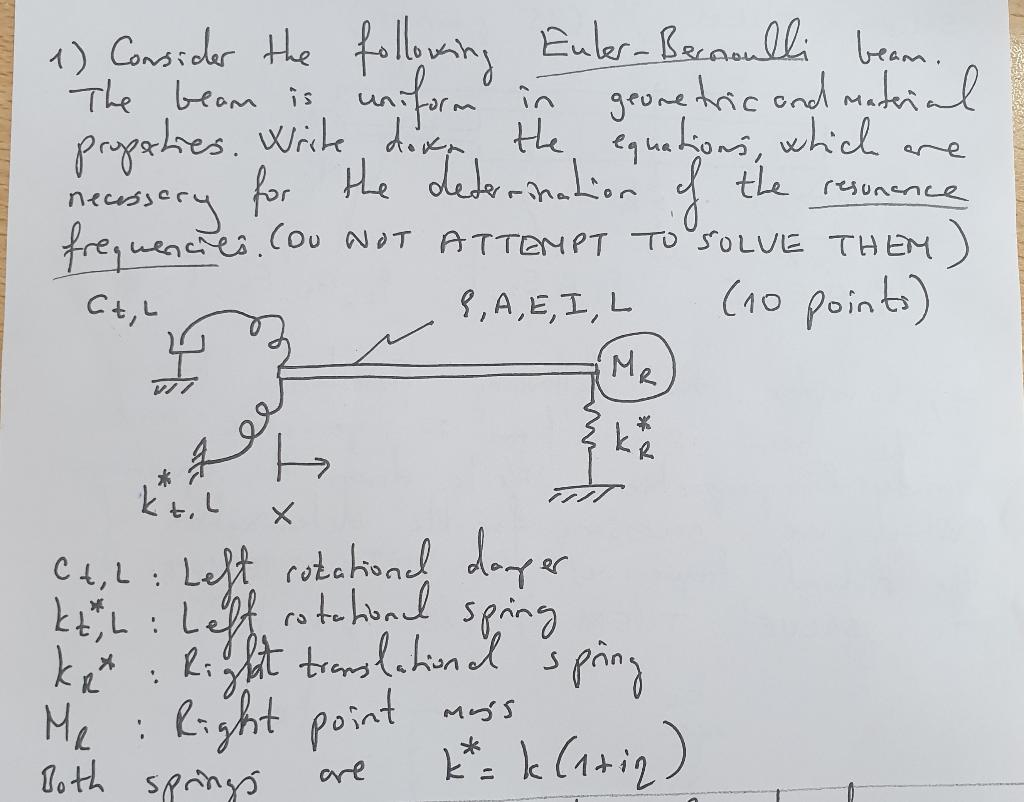 1) Consider the following Euler-Bernoulli beam.
The beam is uniform in geometric and material
properties. Write down the equations, which are
necessary for the determination of the resonance
frequencies. (DO NOT ATTEMPT TO SOLVE THEM)
(10 points)
Ct,L
ρ, A, E, I, L
MR
kR*
k*t,L
x
Ct,L : Left rotational damper
kt*,L : Left rotational spring
kR* : Right translational spring
MR : Right point mass
Both springs are k* = k(1+iη)